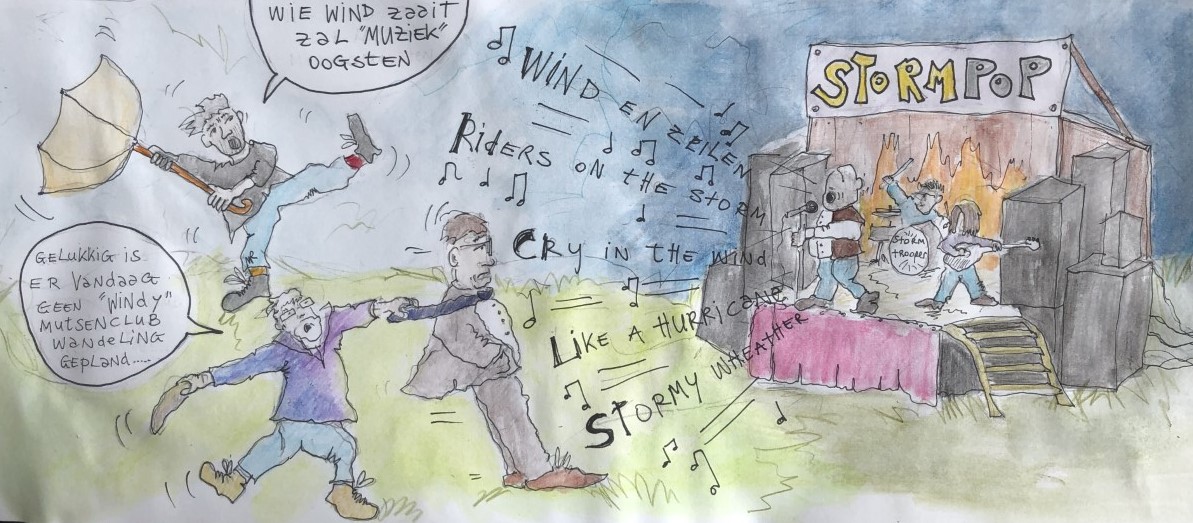 WIE WIND ZAAIT
ZAL "MUZIEK"
OOGSTEN
GELUKKIG IS
ER VANDAAG
GEEN "WINDY"
MUTSENCLUB
WANDELING
GEPLAND.....
WIND EN ZEILEN
RIDERS ON THE STORM
CRY IN THE WIND
LIKE A HURRICANE
STORMY WHEATHER
STORMPOP
STORM
TROOPERS